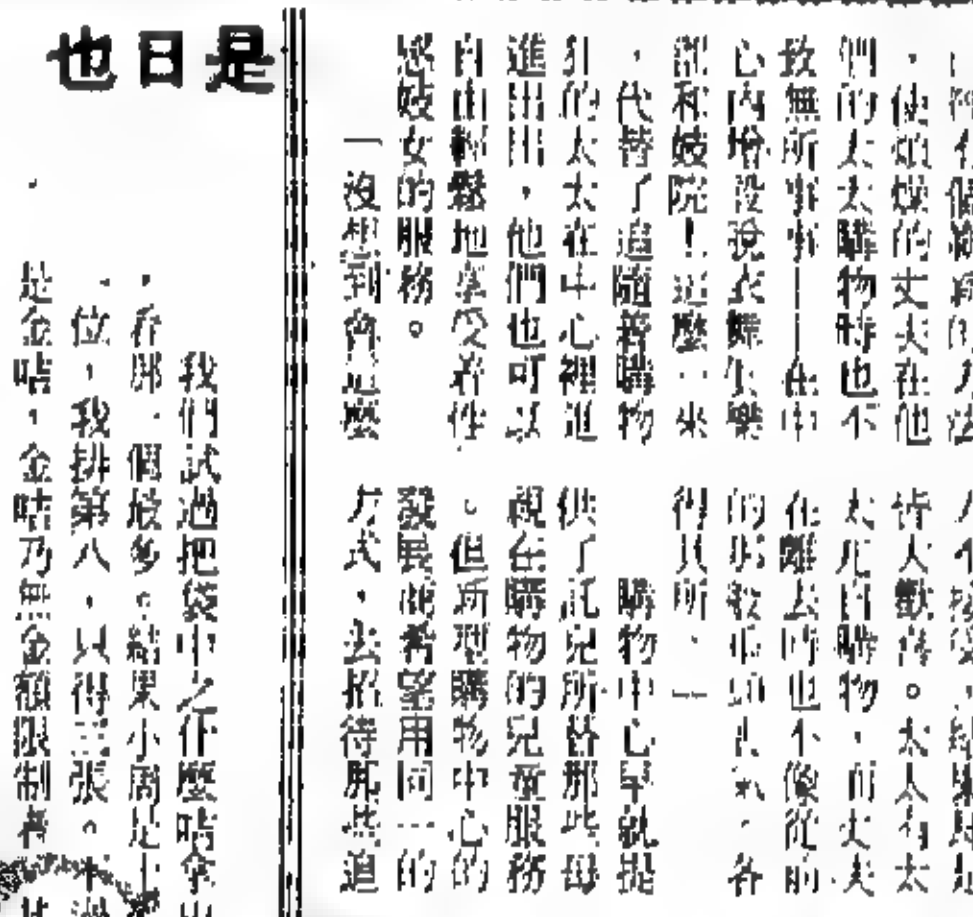 使煩燥的丈夫在他
們的太太購物時也不
致無所事事——在中
心內增設脫衣舞俱樂
部和妓院!這麼一來
,代替了追隨著購物
狂的太太在中心裡進
進出出,他們也可以
自由輕鬆地享受着性
感妓女的服務。
「沒想到會這麼
皆大歡喜。太太有太
太死自購物,而丈夫
在離去時也不像從前
的垂頭喪氣,各
得其所。」
購物中心早就提
供了託兒所替那些母
親在購物的兒童服務
。但新型購物中心的
發展商希望用同一的
方式,去招待那些追
是日也
我們試過把袋中之什麼咭拿出
,看那一個最多。結果小周是十
一位,我排第八,只得三張。
是金咭,金咭乃無金額限制者